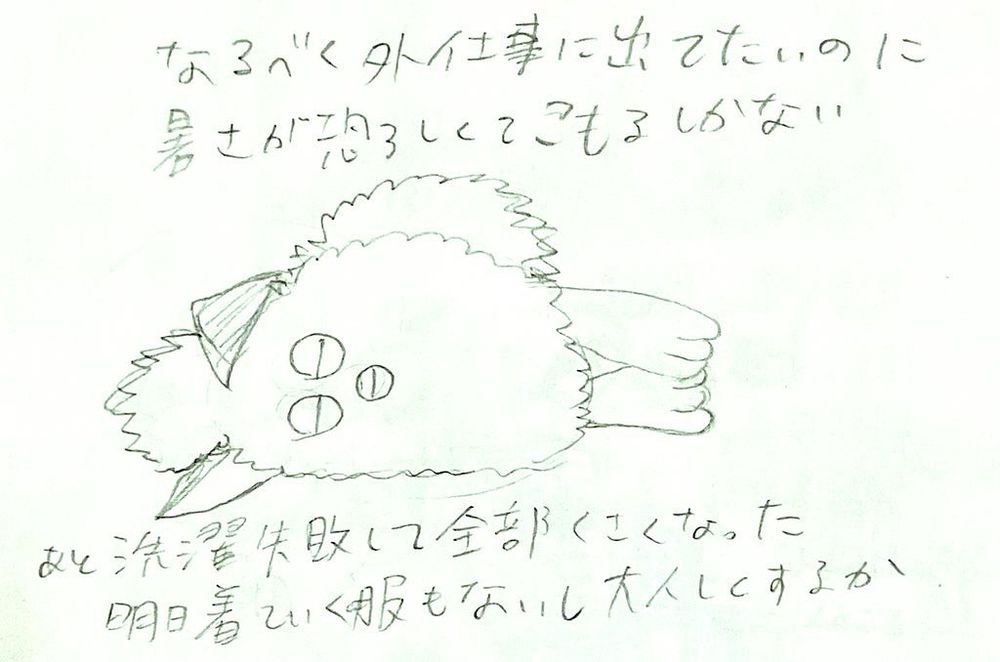 なるべく外仕事に出てたいのに
暑さが恐ろしくてこもるしかない
あと洗濯失敗して全部くさくなった
明日着ていく服もないし大人しくするか